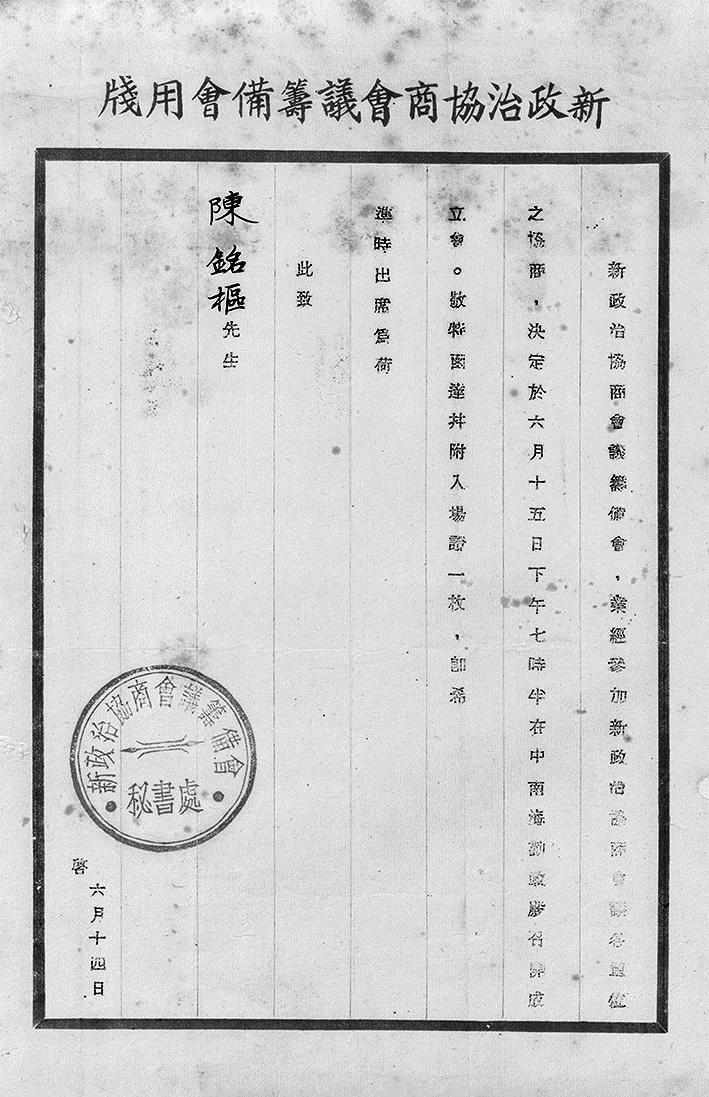 新政治協商會議籌備會用牋
新政治協商會議籌備會，業經參加新政治協商會議各單位
之協商，決定於六月十五日下午七時半在中南海勤政殿召開成
立會。敬特函達幷附入場證一枚，卽希
準時出席爲荷
此致
陳銘樞先生
新政治協商會議籌備會
秘書處
啓
六月十四日